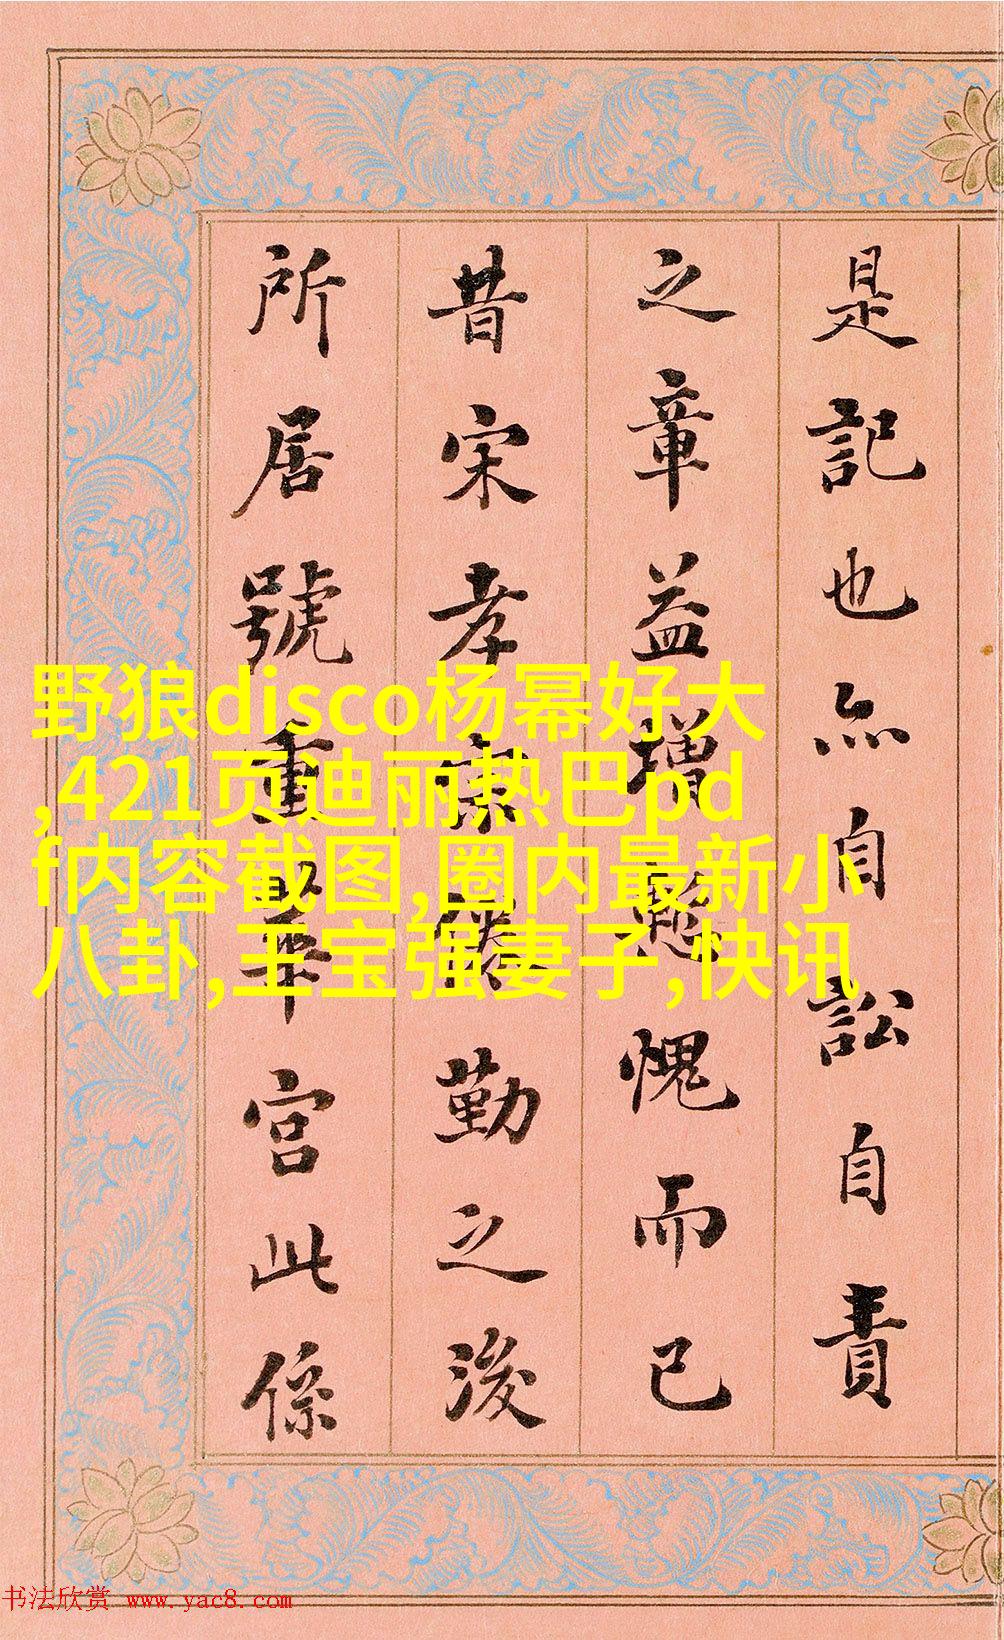 是記也亦自訟自責
之章益增慙愧而已
昔宋孝宗倦勤之後
所居號重華宮此係
野狼disco杨幂好大
,421页迪丽热巴pd
f内容截图,圈内最新小
八卦,王宝强妻子,快讯
书法欣赏 www.yac8.com